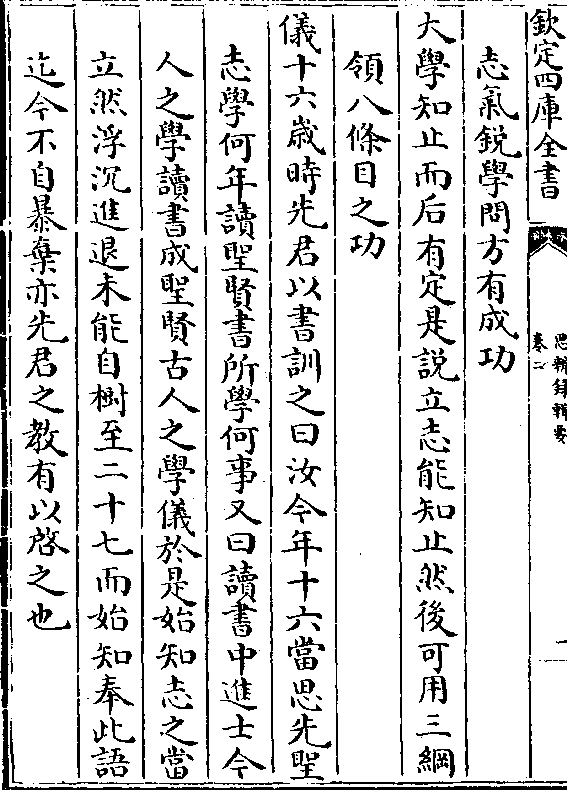 欽定四庫全書
思辨録輯要
卷二
志氣鋭學問方有成功
大學知止而后有定是説立志能知止然後可用三綱
領八條目之功
儀十六歳時先君以書訓之曰汝今年十六當思先聖
志學何年讀聖賢書所學何事又曰讀書中進士今
人之學讀書成聖賢古人之學儀於是始知志之當
立然浮沉進退未能自樹至二十七而始知奉此語
迄今不自暴棄亦先君之教有以啓之也